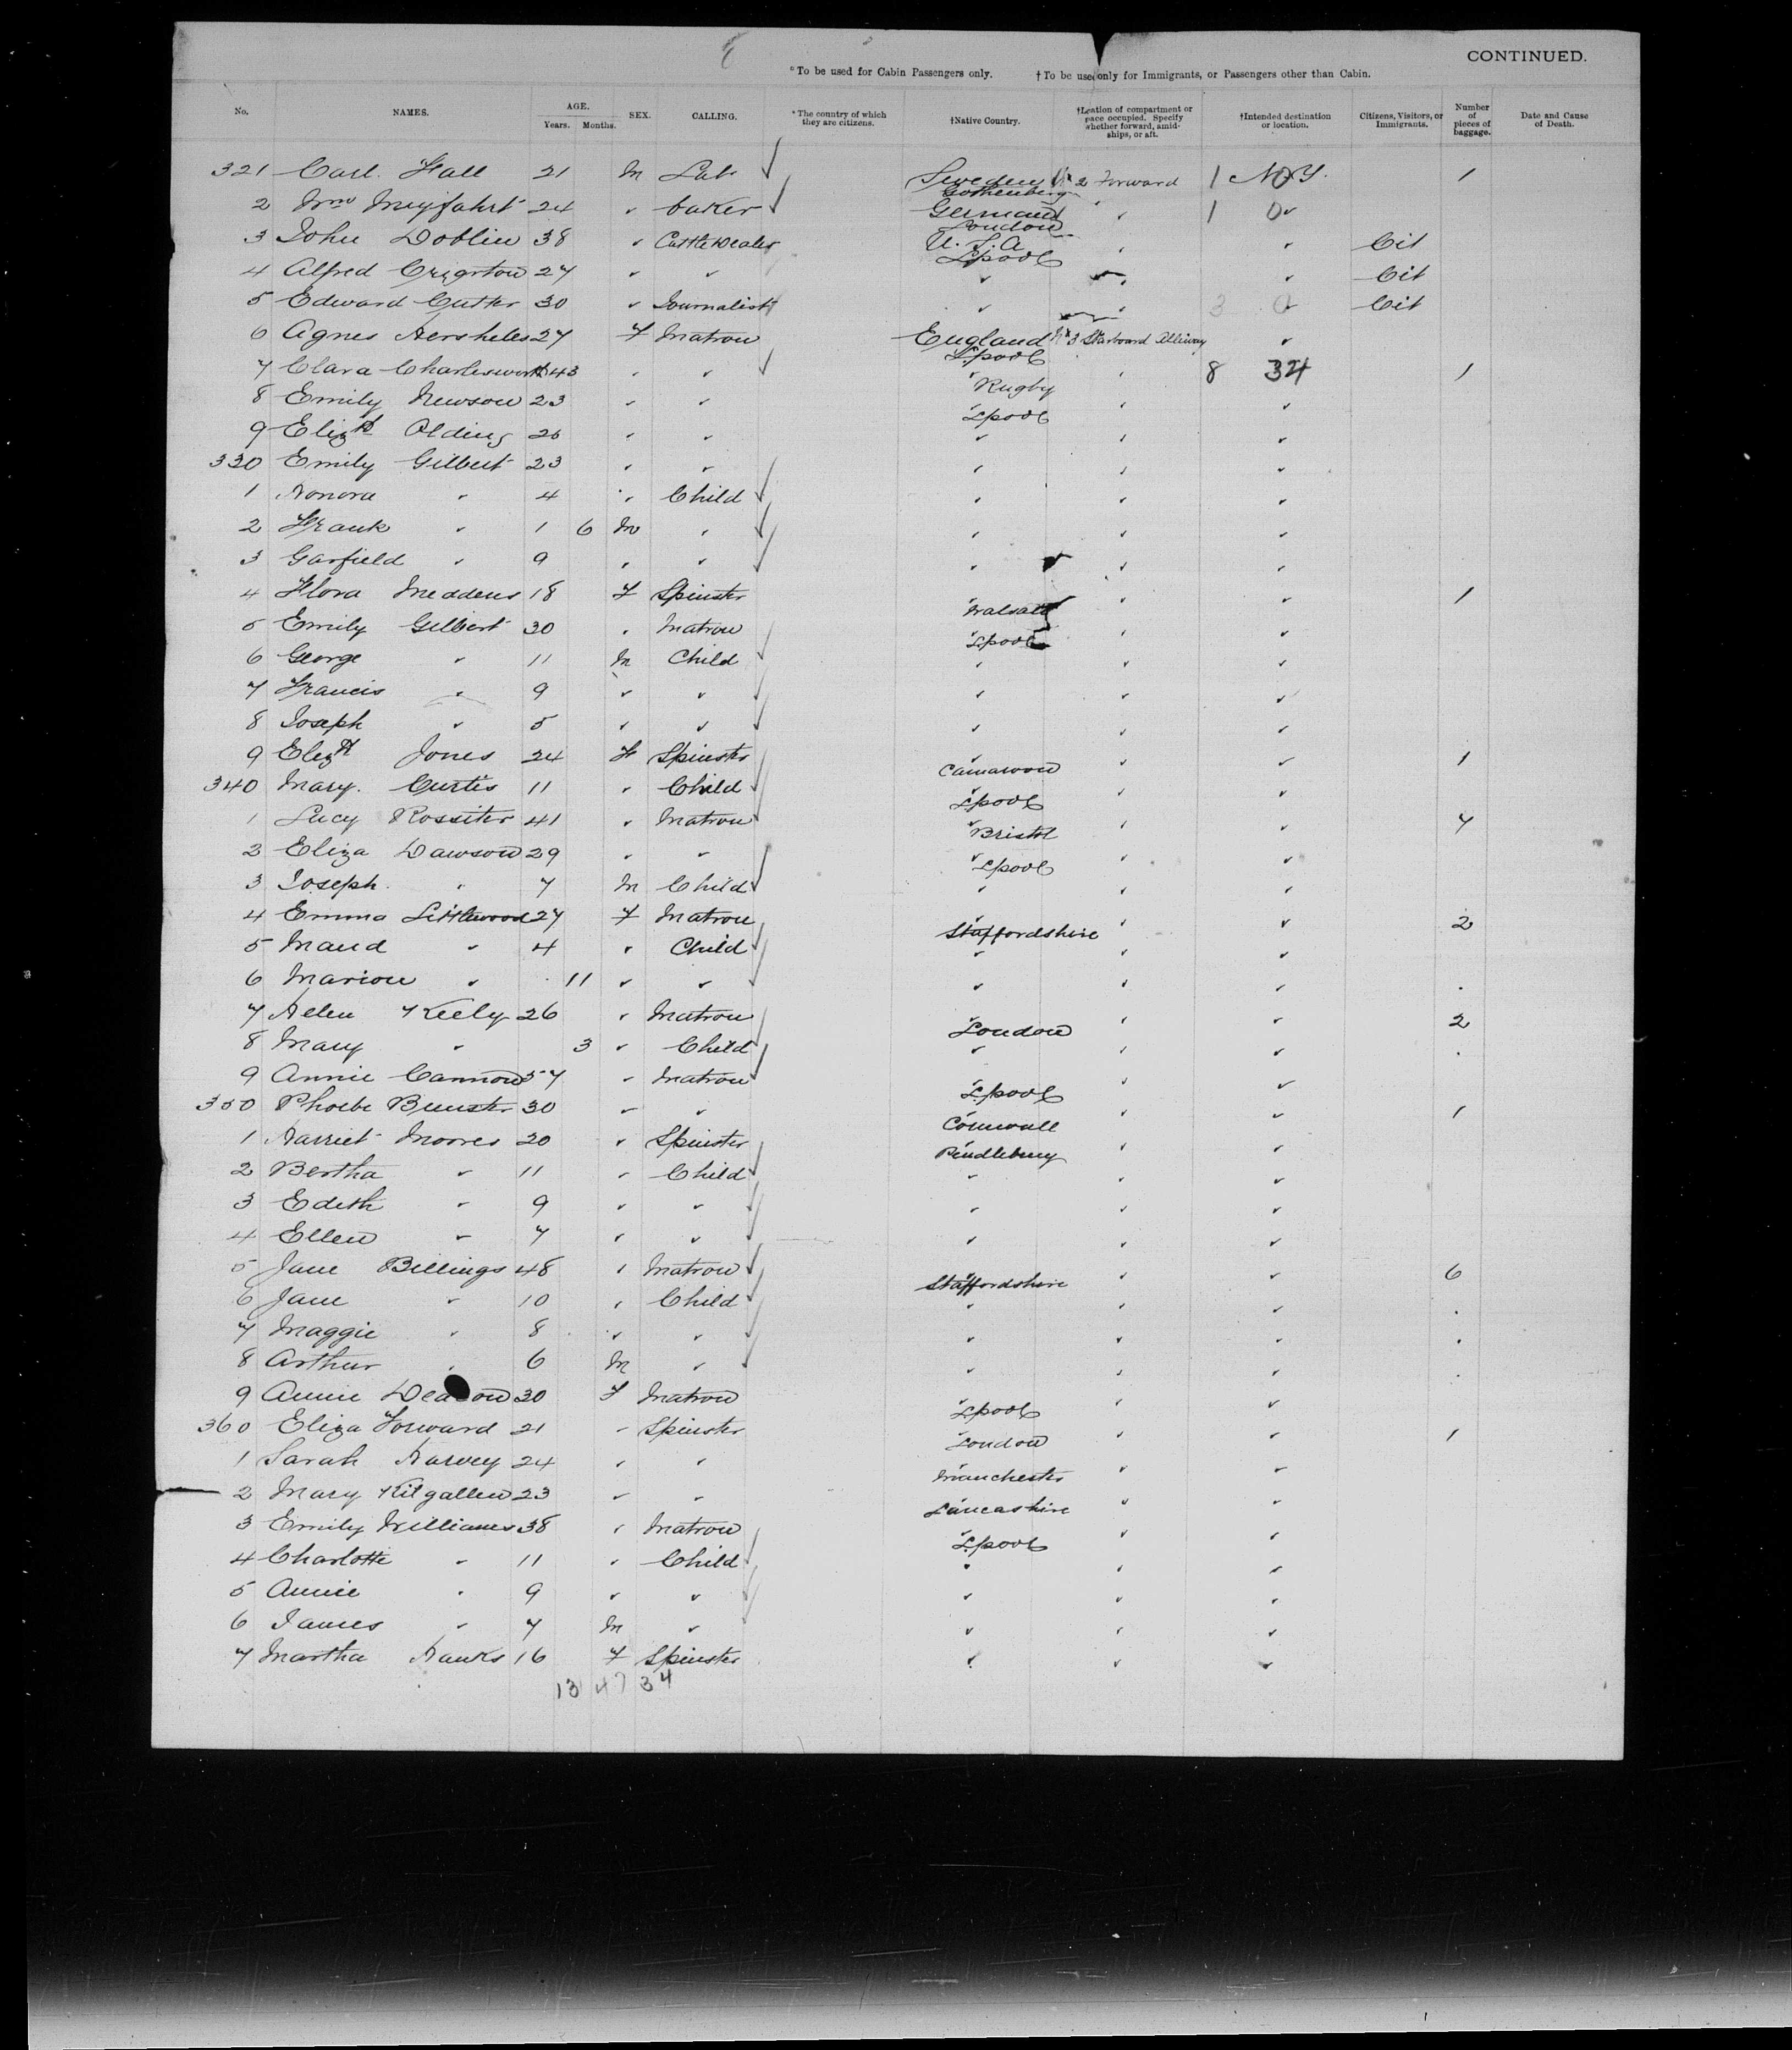 CONTINUED.
*To be used for Cabin Passengers only. †To be used only for Immigrants, or Passengers other than Cabin.
No. NAMES. AGE. Years. Months. SEX. CALLING. *The country of which they are citizens. †Native Country. †Location of compartment or pace occupied. Specify whether forward, amid-ships, or aft. †Intended destination or location. Citizens, Visitors, or Immigrants. Number of pieces of baggage. Date and Cause of Death.
321 Carl Hall 21 M Lab ✓ Sweden Gothenberg 2 Forward 1 N.Y. 1
2 Wm Meyfahrt 24 " baker ✓ Germany London " 1 0 "
3 John Doblin 38 " Cattle Dealer U.S.A L'pool " " Cit
4 Alfred 27 " " " " " Cit
5 Edward Cutter 30 " Journalist " " 3 0 Cit
6 Agnes 27 F Matron England L'pool 3 Starboard Alleiway "
7 Clara Charlesworth 43 " " ✓ " Rugby " 8 34 1
8 Emily Newson 23 " " " L'pool " "
9 Elizth Olding 26 " " " " "
330 Emily Gilbert 23 " " " " "
1 Honora " 4 " Child ✓ " " "
2 Frank " 1 6 M " ✓ " " "
3 Garfield " 9 " " ✓ " " "
4 Flora Meddens 18 F Spinster " Walsall " " 1
5 Emily Gilbert 30 " Matron " L'pool " "
6 George " 11 M Child ✓ " " "
7 Francis " 9 " " ✓ " " "
8 Joseph " 5 " " ✓ " " "
9 Elizth Jones 24 F Spinster " Carnarvon " " 1
340 Mary Curtis 11 " Child ✓ " L'pool " "
1 Lucy Rossiter 41 " Matron " Bristol " " 7
2 Eliza Dawson 29 " " " L'pool " "
3 Joseph " 7 M Child ✓ " " "
4 Emma Littlewood 27 F Matron " Staffordshire " " 2
5 Maud " 4 " Child ✓ " " "
6 Marion " 11 " " ✓ " " "
7 Helen Keely 26 " Matron " London " " 2
8 Mary " 3 " Child ✓ " " "
9 Annie Cannon 57 " Matron ✓ " L'pool " "
350 Phoebe Bunster 30 " " " Cornwall " " 1
1 Harriet Moores 20 " Spinster " Pendlebury " "
2 Bertha " 11 " Child ✓ " " "
3 Edith " 9 " " ✓ " " "
4 Ellen " 7 " " ✓ " " "
5 Jane Billings 48 " Matron ✓ " Staffordshire " " 6
6 Jane " 10 " Child ✓ " " "
7 Maggie " 8 " " ✓ " " "
8 Arthur " 6 M " ✓ " " "
9 Annie 30 F Matron " L'pool " "
360 Eliza Forward 21 " Spinster " London " " 1
1 Sarah Harvey 24 " " " Manchester " "
2 Mary Kilgallen 23 " " " Lancashire " "
3 Emily Williams 38 " Matron " L'pool " "
4 Charlotte " 11 " Child ✓ " " "
5 Annie " 9 " " ✓ " " "
6 James " 7 M " ✓ " " "
7 Martha Hanks 16 F Spinster " " "
13 47 34